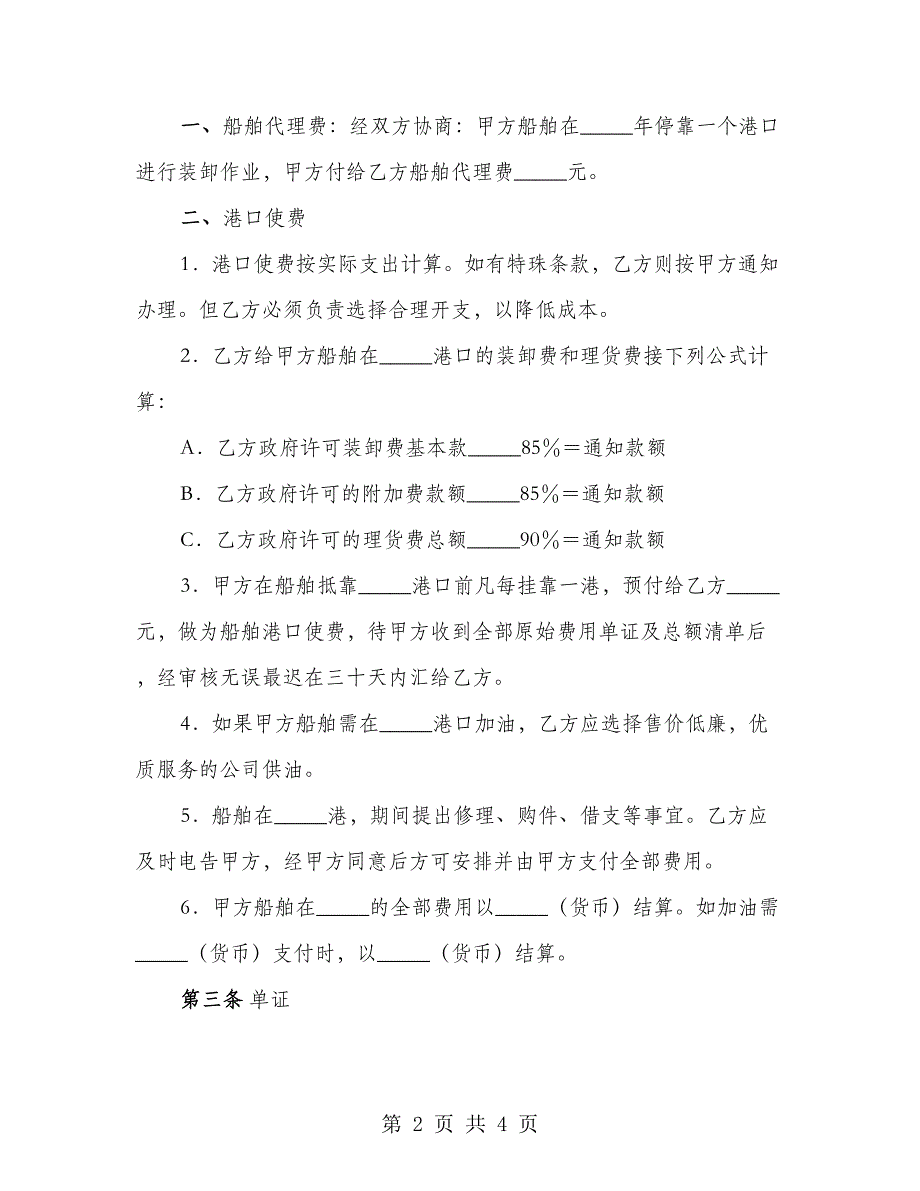 一、船舶代理费：经双方协商：甲方船舶在_____年停靠一个港口
进行装卸作业，甲方付给乙方船舶代理费_____元。
二、港口使费
1．港口使费按实际支出计算。如有特殊条款，乙方则按甲方通知
办理。但乙方必须负责选择合理开支，以降低成本。
2．乙方给甲方船舶在_____港口的装卸费和理货费接下列公式计
算：
A．乙方政府许可装卸费基本款_____85％＝通知款额
B．乙方政府许可的附加费款额_____85％＝通知款额
C．乙方政府许可的理货费总额_____90％＝通知款额
3．甲方在船舶抵靠_____港口前凡每挂靠一港，预付给乙方_____
元，做为船舶港口使费，待甲方收到全部原始费用单证及总额清单后
，经审核无误最迟在三十天内汇给乙方。
4．如果甲方船舶需在_____港口加油，乙方应选择售价低廉，优
质服务的公司供油。
5．船舶在_____港，期间提出修理、购件、借支等事宜。乙方应
及时电告甲方，经甲方同意后方可安排并由甲方支付全部费用。
6．甲方船舶在_____的全部费用以_____（货币）结算。如加油需
_____（货币）支付时，以_____（货币）结算。
第三条 单证
第 2 页 共 4 页